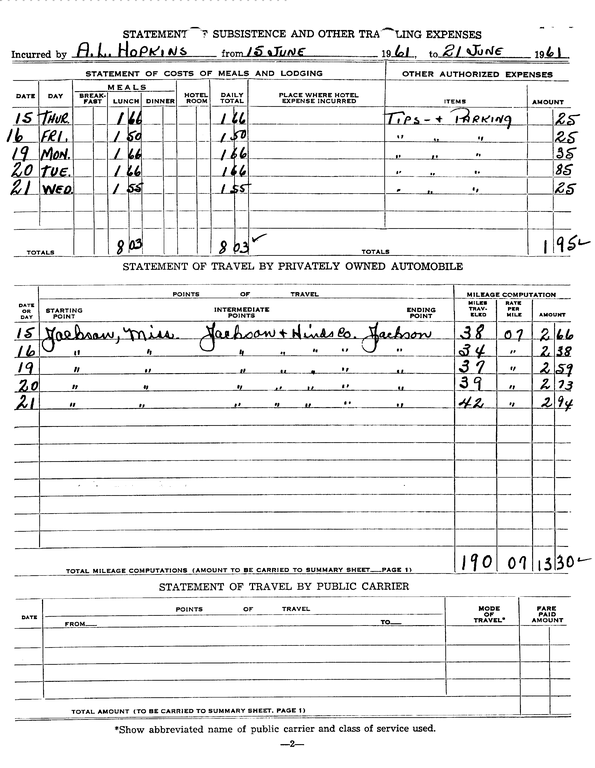 STATEMENT OF SUBSISTENCE AND OTHER TRAVELING EXPENSES
Incurred by A.L. HOPKINS from 15 JUNE 1961, to 21 JUNE 1961
STATEMENT OF COSTS OF MEALS AND LODGING OTHER AUTHORIZED EXPENSES
DATE DAY MEALS BREAK-FAST LUNCH DINNER HOTEL ROOM DAILY TOTAL PLACE WHERE HOTEL EXPENSE INCURRED ITEMS AMOUNT
15 THUR. 1 66 1 66 TIPS - + PARKING 25
16 FRI. 1 50 1 50 " " " 25
19 MON. 1 66 1 66 " " " 35
20 TUE. 1 66 1 66 " " " 85
21 WED. 1 55 1 55 " " " 25
TOTALS 8 03 8 03 ✓ TOTALS 1 95 ✓
STATEMENT OF TRAVEL BY PRIVATELY OWNED AUTOMOBILE
DATE OR DAY POINTS OF TRAVEL MILEAGE COMPUTATION
STARTING POINT INTERMEDIATE POINTS ENDING POINT MILES TRAV-ELED RATE PER MILE AMOUNT
15 Jackson, Miss. Jackson + Hinds Co. Jackson 38 07 2 66
16 " " " " " " " 34 " 2 38
19 " " " " " " " 37 " 2 59
20 " " " " " " " 39 " 2 73
21 " " " " " " " 42 " 2 94
TOTAL MILEAGE COMPUTATIONS (AMOUNT TO BE CARRIED TO SUMMARY SHEET__PAGE 1) 190 07 13 30 ✓
STATEMENT OF TRAVEL BY PUBLIC CARRIER
DATE POINTS OF TRAVEL MODE OF TRAVEL* FARE PAID AMOUNT
FROM__ TO__
TOTAL AMOUNT (TO BE CARRIED TO SUMMARY SHEET. PAGE 1)
*Show abbreviated name of public carrier and class of service used.
—2—